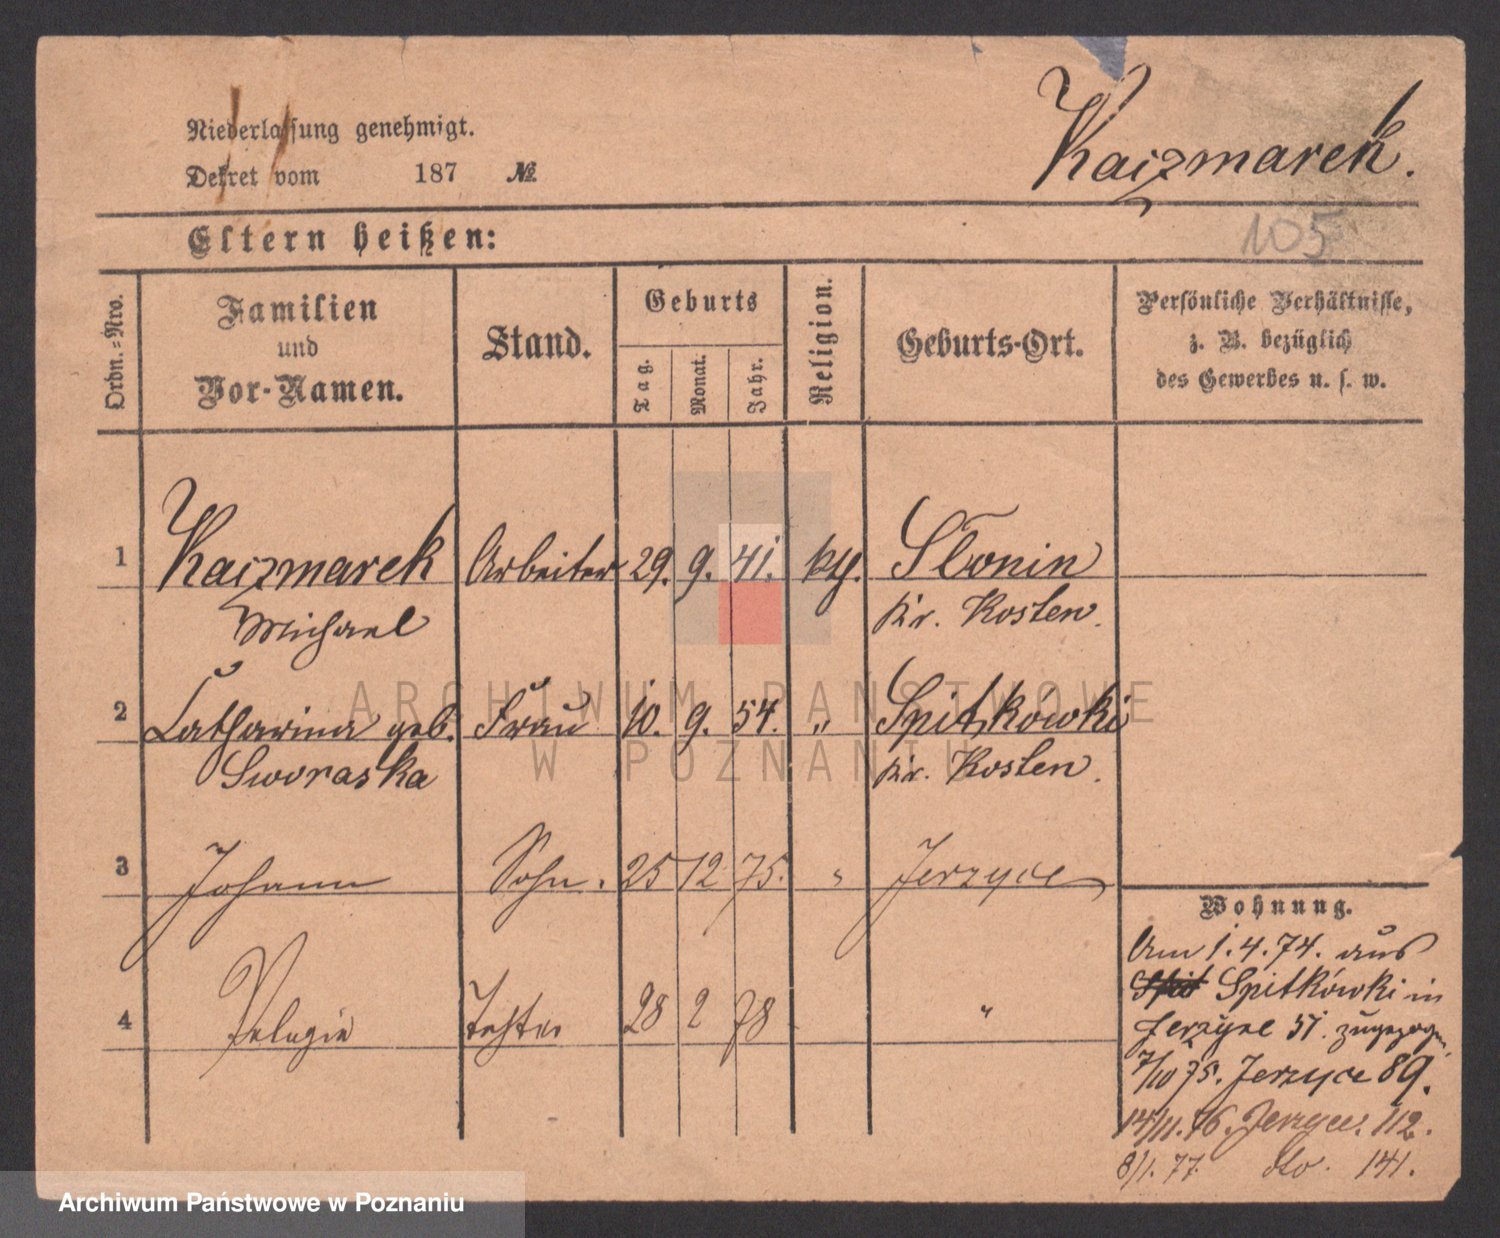 Kaczmarek.
Niederlassung genehmigt.
Dekret vom 187 №
105
Eltern heißen:
Ordn.=Nro.
Familien und Vor-Namen.
Stand.
Geburts
Tag.
Monat.
Jahr.
Religion.
Geburts-Ort.
Persönliche Verhältnisse,
z. B. bezüglich
des Gewerbes u. s. w.
1 Kaczmarek Arbeiter 29. 9. 41. kth. Słonin
Michael Kr. Kosten.
2 Catharina geb. Frau 10. 9. 54. „ Spitkowki
Sworaska Kr. Kosten.
3 Johann Sohn. 25 12 75. „ Jerzyce
4 Pelagia Tochter 28 2 78 „
Wohnung.
Am 1.4.74. aus
Spitkówki in
Jerzyce 51. zugezogen.
7/10 75. Jerzyce 89.
14/11. 76. Jerzyce. 112.
8/1. 77. dto. 141.
ARCHIWUM PAŃSTWOWE
W POZNANIU
Archiwum Państwowe w Poznaniu